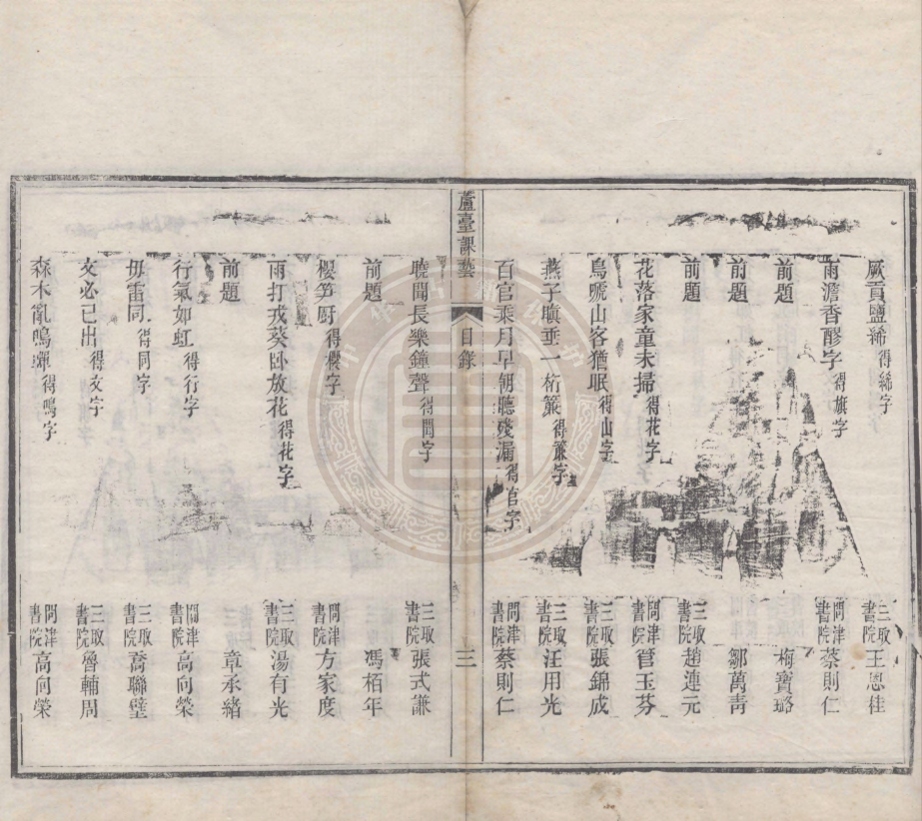 厥貢鹽絺得絺字 三取書院王恩桂
雨澹香醪字得旗字 問津書院蔡則仁
前題 梅寶璐
前題 鄒萬青
前題 三取書院趙連元
花落家童未掃得花字 問津書院管玉芬
鳥嗁山客猶眠得山字 三取書院張錦成
燕子曠垂一桁簾得簾字 三取書院汪用光
百官乘月早朝聽殘漏得官字 問津書院蔡則仁
蘆臺課藝 目錄 三
曉聞長樂鐘聲得聞字 三取書院張式謙
前題 馮栢年
櫻笋厨得櫻字 問津書院方家度
雨打戎葵卧放花得花字 三取書院湯有光
前題 章承緒
行氣如虹得行字 問津書院高向榮
毋雷同得同字 三取書院喬聯璧
文必已出得文字 三取書院魯輔周
森木亂鳴蟬得鳴字 問津書院高向榮